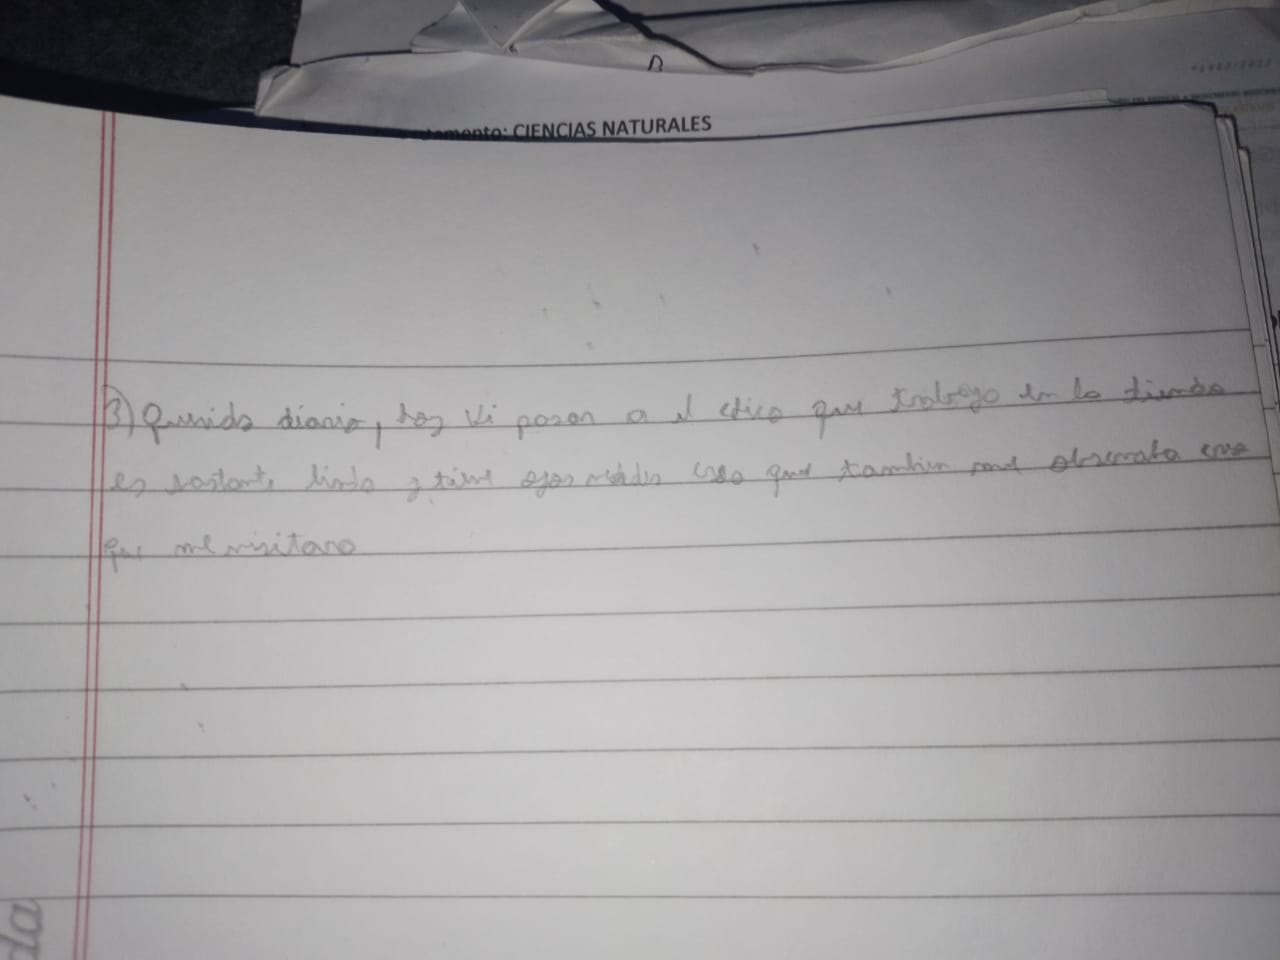 D
tamento: CIENCIAS NATURALES
3) Querido diario, hoy vi pasar a el chico que trabaja en la tienda
es bastante lindo y tiene ojos verdes creo que tambien me observaba creo
que me visitara
da